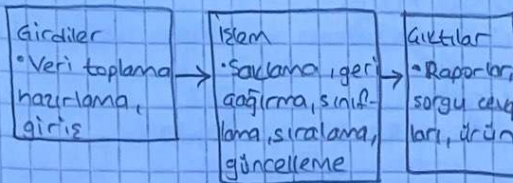 Girdiler
• Veri toplama
hazırlama,
giriş
İşlem
• Saklama, geri
çağırma, sınıf-
lama, sıralama,
güncelleme
Çıktılar
• Raporlar,
sorgu
ları, ürün